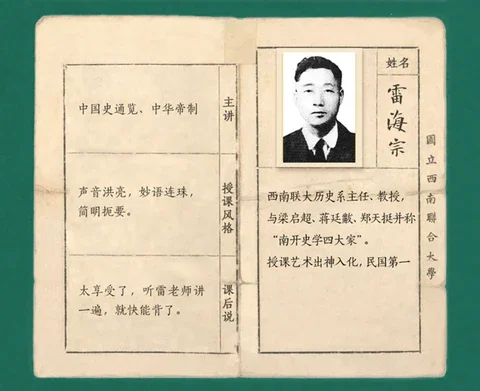 中国史通览、中华帝制
主讲
声音洪亮，妙语连珠，
简明扼要。
授课风格
太享受了，听雷老师讲
一遍，就快能背了。
课后说
姓名
雷海宗
西南联大历史系主任、教授，
与梁启超、蒋廷黻、郑天挺并称
“南开史学四大家”。
授课艺术出神入化，民国第一
國立西南聯合大學